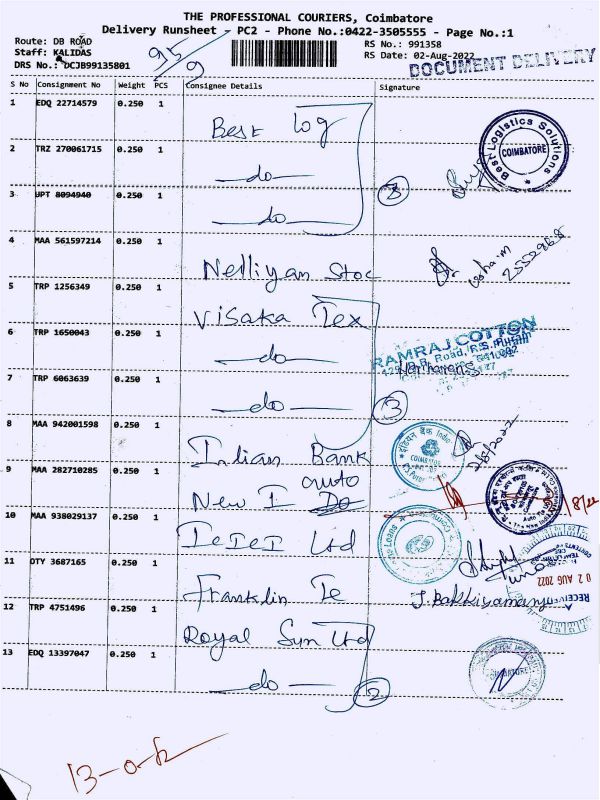 THE PROFESSIONAL COURIERS, Coimbatore
Delivery Runsheet - PC2 - Phone No.:0422-3505555 - Page No.:1
Route: DB ROAD
RS No.: 991358
Staff: KALIDAS
RS Date: 02-Aug-2022
DRS No.: DCJB99135801
DOCUMENT DELIVERY
S No Consignment No Weight PCS Consignee Details Signature
1 EDQ 22714579 0.250 1 Best Log
2 TRZ 270061715 0.250 1 —do—
Best Logistics Solutions
COIMBATORE
3 UPT 8094940 0.250 1 —do—
3
4 MAA 561597214 0.250 1 Nelliyan Stoc
5 TRP 1256349 0.250 1 Visaka Tex
6 TRP 1650043 0.250 1 —do—
RAMRAJ COTTON
7 TRP 6063639 0.250 1 —do—
3
8 MAA 942001598 0.250 1 Indian Bank
COIMBATORE
9 MAA 282710285 0.250 1 New I Auto
10 MAA 938029137 0.250 1 ICICI Ltd
11 OTY 3687165 0.250 1 Franklin Te
02 AUG 2022
RECEIVED
12 TRP 4751496 0.250 1 Royal Sun Ltd
13 EDQ 13397047 0.250 1 —do—
2
COIMBATORE
13-0-